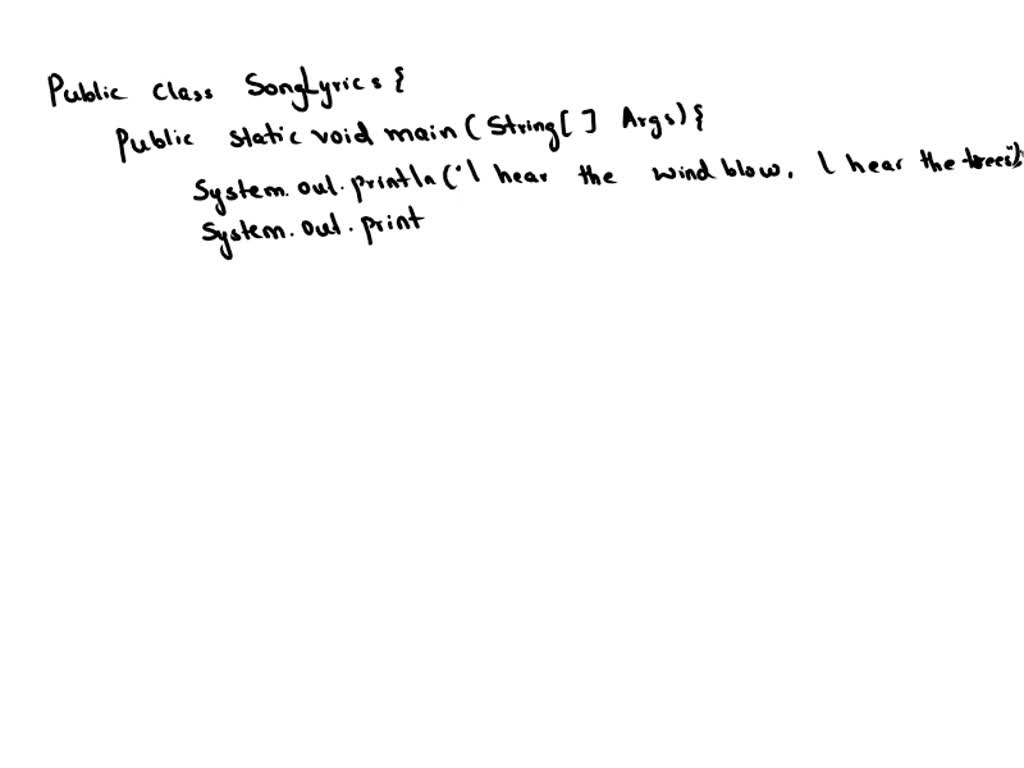 Public class SongLyrics {
Public static void main ( String [ ] Args) {
System. out. println ("I hear the wind blow, I hear the trees");
System. out. print